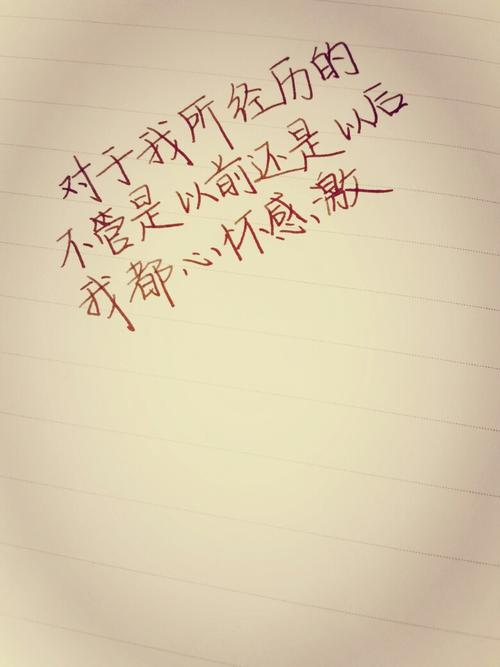 对于我所经历的
不管是以前还是以后
我都心怀感激